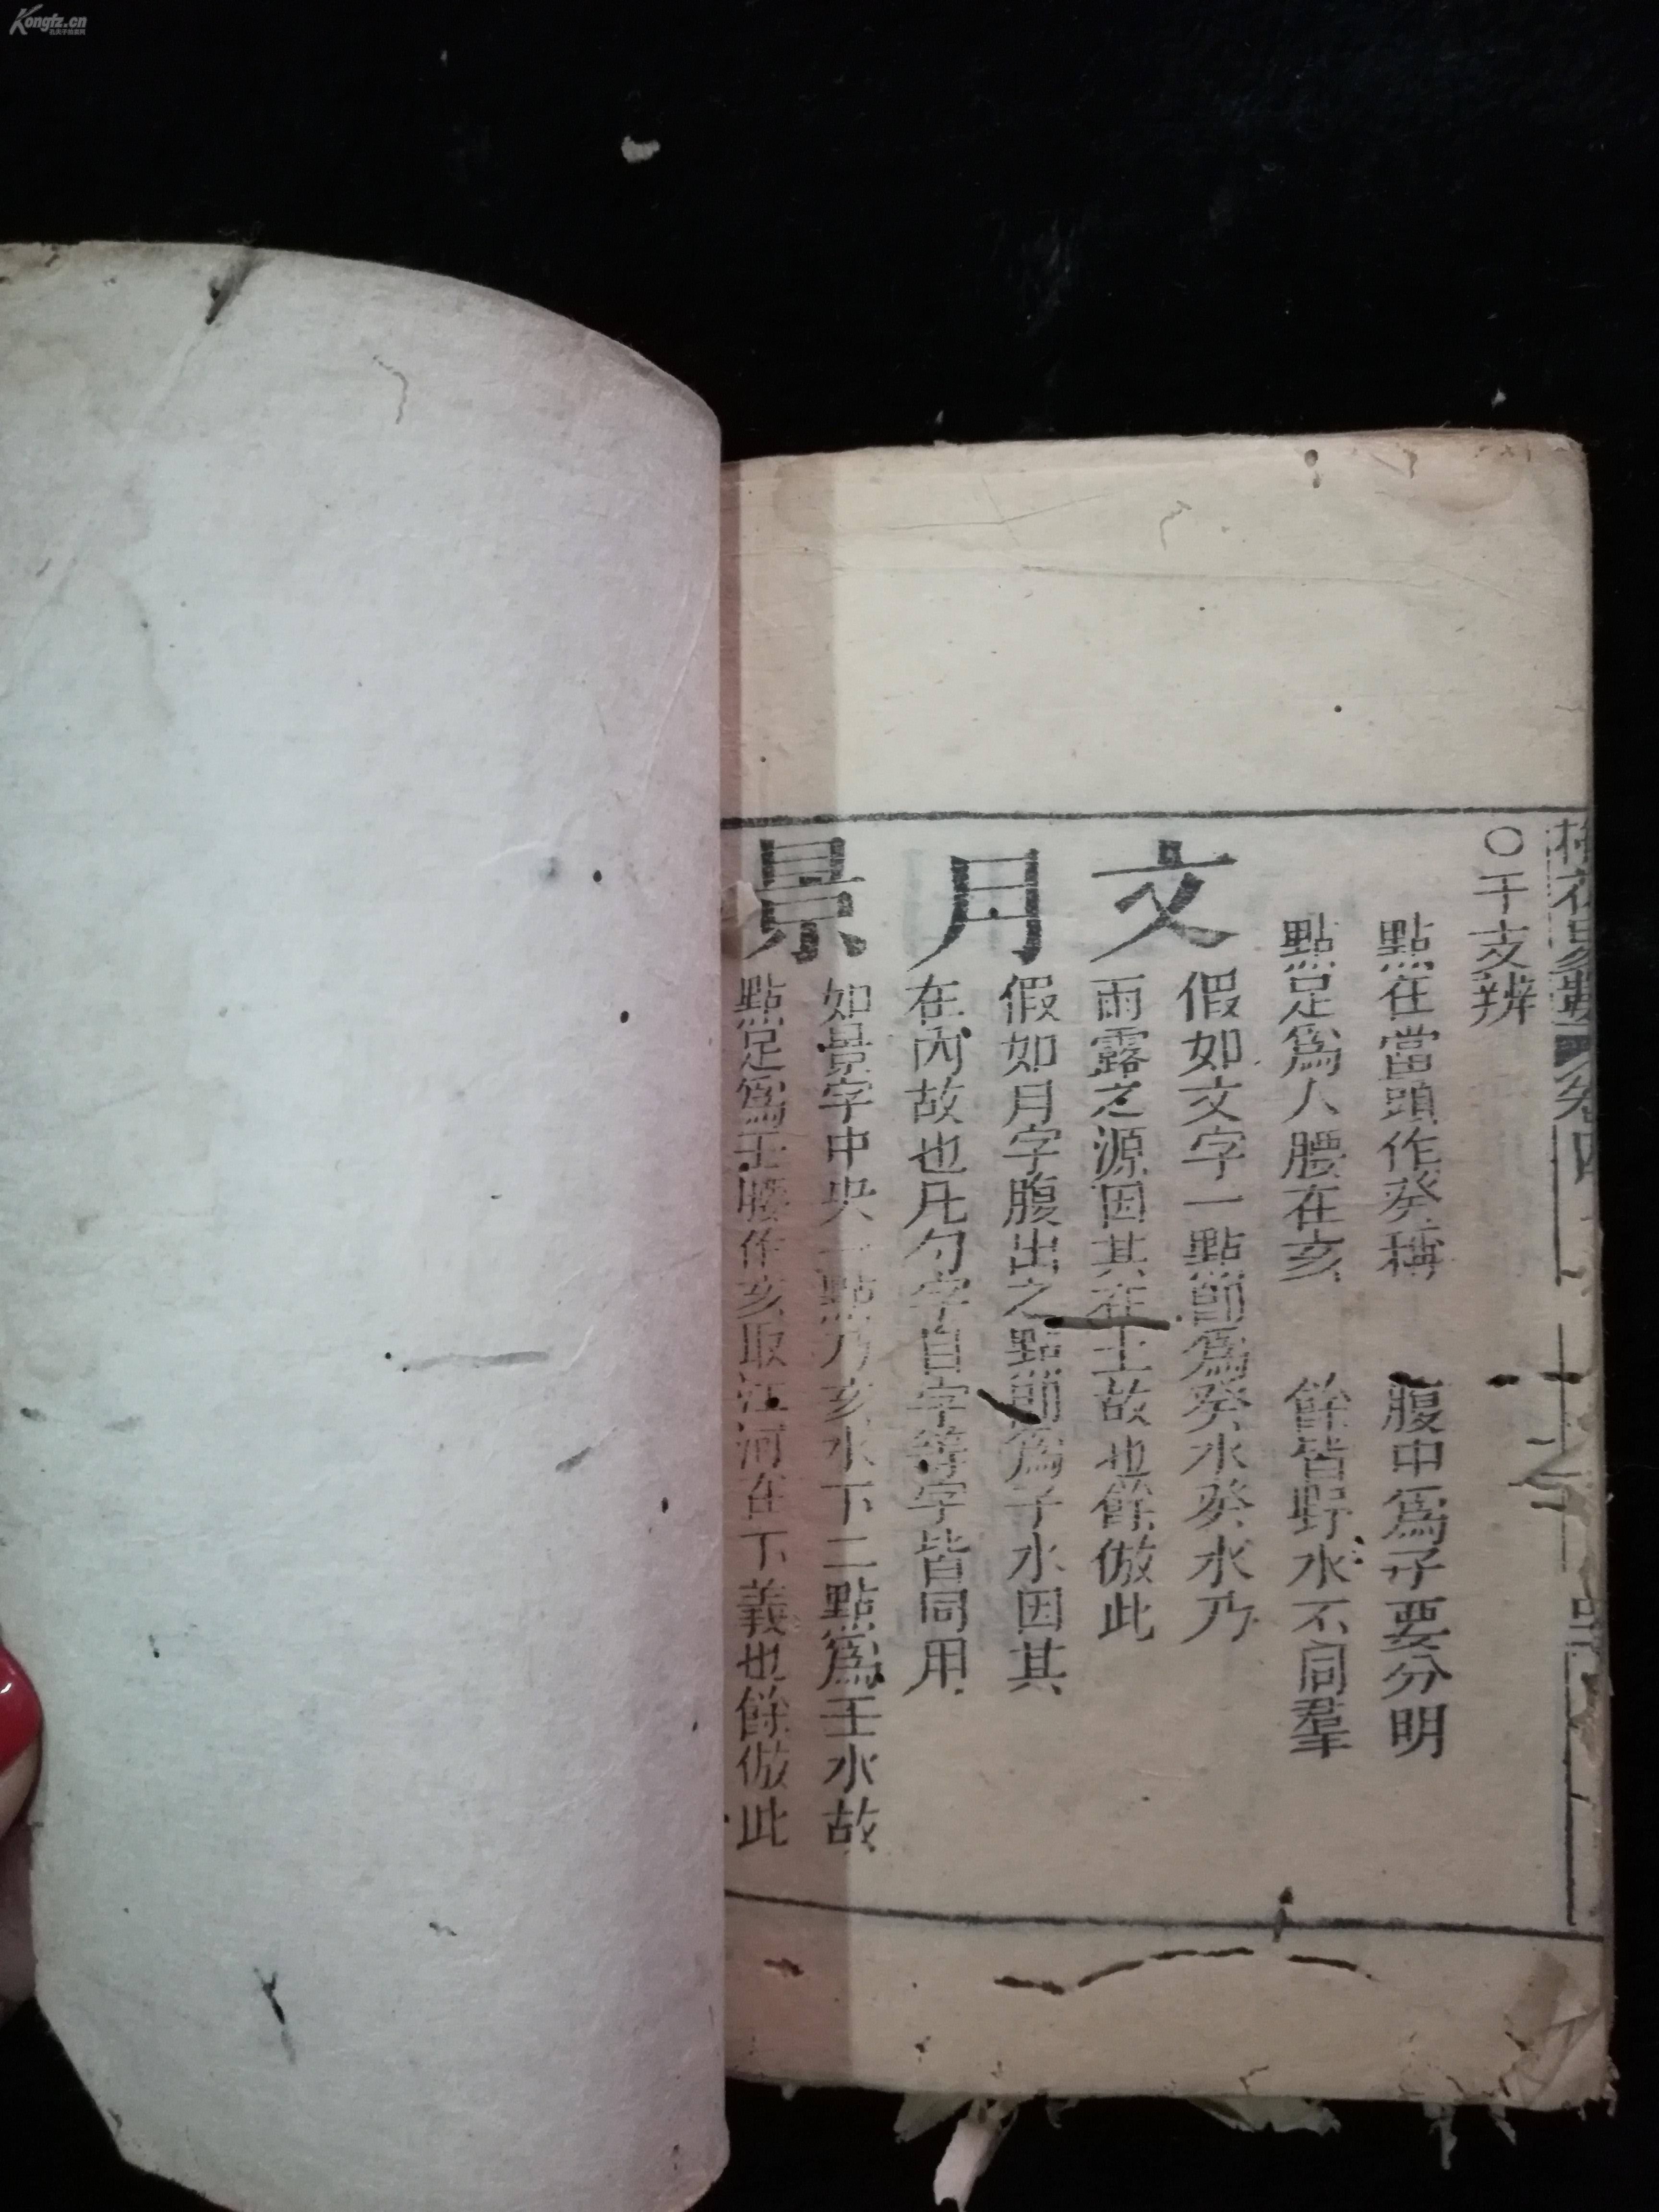 Kongfz.cn
孔夫子旧书网
梅花易數 卷四
○干支辨
點在當頭作癸稱 腹中爲子要分明
點足爲人腰在亥 餘皆野水不同羣
文 假如文字一點節爲癸水癸水乃
雨露之源因其在上故也餘倣此
月 假如月字腹出之點節爲子水因其
在內故也凡勺字自字等字皆同用
景 如景字中央一點乃亥水下二點爲壬水故
點足爲壬腰作亥取江河在下義也餘倣此